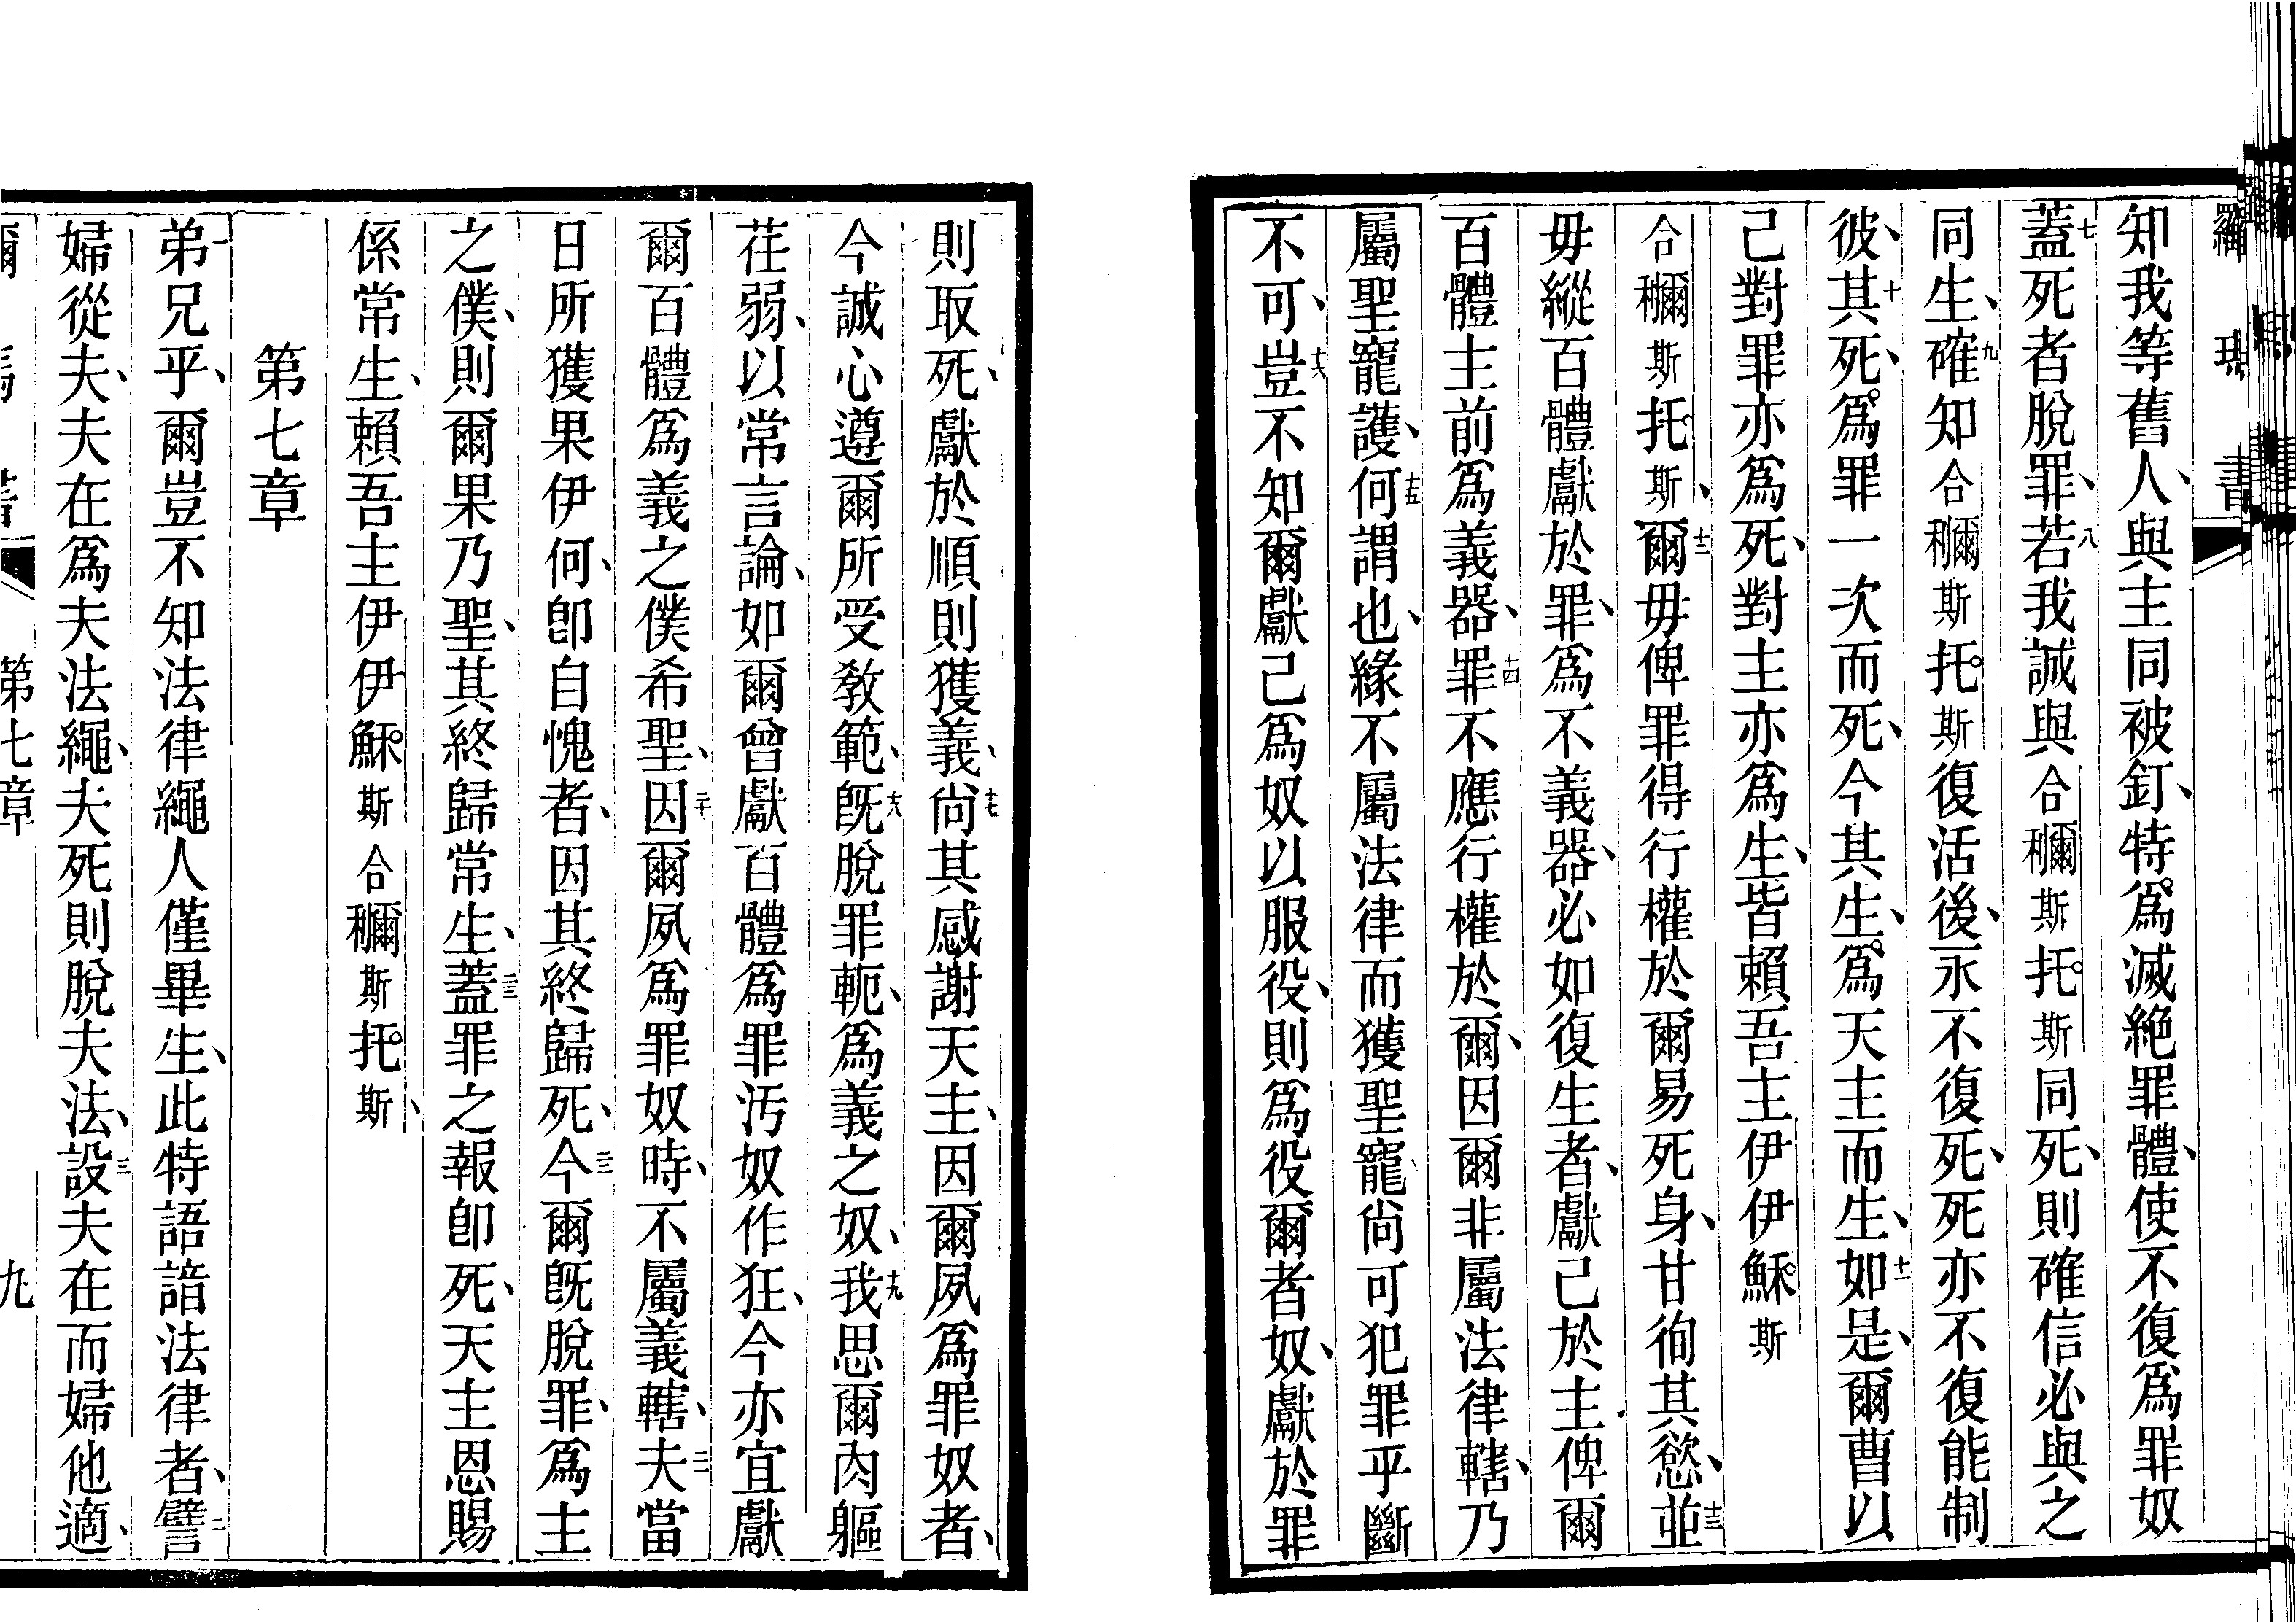 羅瑪書
知我等舊人、與主同被釘、特爲滅絶罪體、使不復爲罪奴
七蓋死者脫罪、八若我誠與合𥼶斯托斯同死、則確信必與之
同生、九確知合𥼶斯托斯復活後、永不復死、死亦不復能制
彼、十其死、爲罪一次而死、今其生、爲天主而生、十一如是、爾曹以
己對罪亦爲死、對主亦爲生、皆賴吾主伊伊穌斯
合𥼶斯托斯、十二爾毋俾罪得行權於爾易死身、甘徇其慾、十三並
毋縱百體獻於罪、爲不義器、必如復生者、獻己於主俾爾
百體主前爲義器、十四罪不應行權於爾、因爾非屬法律轄、乃
屬聖寵護、十五何謂也、緣不屬法律而獲聖寵、尙可犯罪乎斷
不可、十六豈不知爾獻己爲奴以服役、則爲役爾者奴、獻於罪
則取死、獻於順則獲義、十七尙其感謝天主、因爾夙爲罪奴者、
今誠心遵爾所受敎範、十八旣脫罪軛、爲義之奴、十九我思爾肉軀
荏弱、以常言論、如爾曾獻百體爲罪汚奴作狂、今亦宜獻
爾百體爲義之僕希聖、二十因爾夙爲罪奴時、不屬義轄、二一夫當
日所獲果伊何、卽自愧者、因其終歸死、二二今爾旣脫罪、爲主
之僕、則爾果乃聖、其終歸常生、二三蓋罪之報卽死、天主恩賜
係常生、賴吾主伊伊穌斯合𥼶斯托斯、
第七章
一弟兄乎、爾豈不知法律繩人僅畢生、此特語諳法律者、二譬
婦從夫、夫在爲夫法繩、夫死則脫夫法、三設夫在而婦他適、
第七章 九